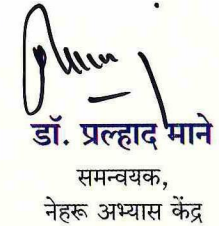 डॉ. प्रल्हाद माने
समन्वयक,
नेहरू अभ्यास केंद्र